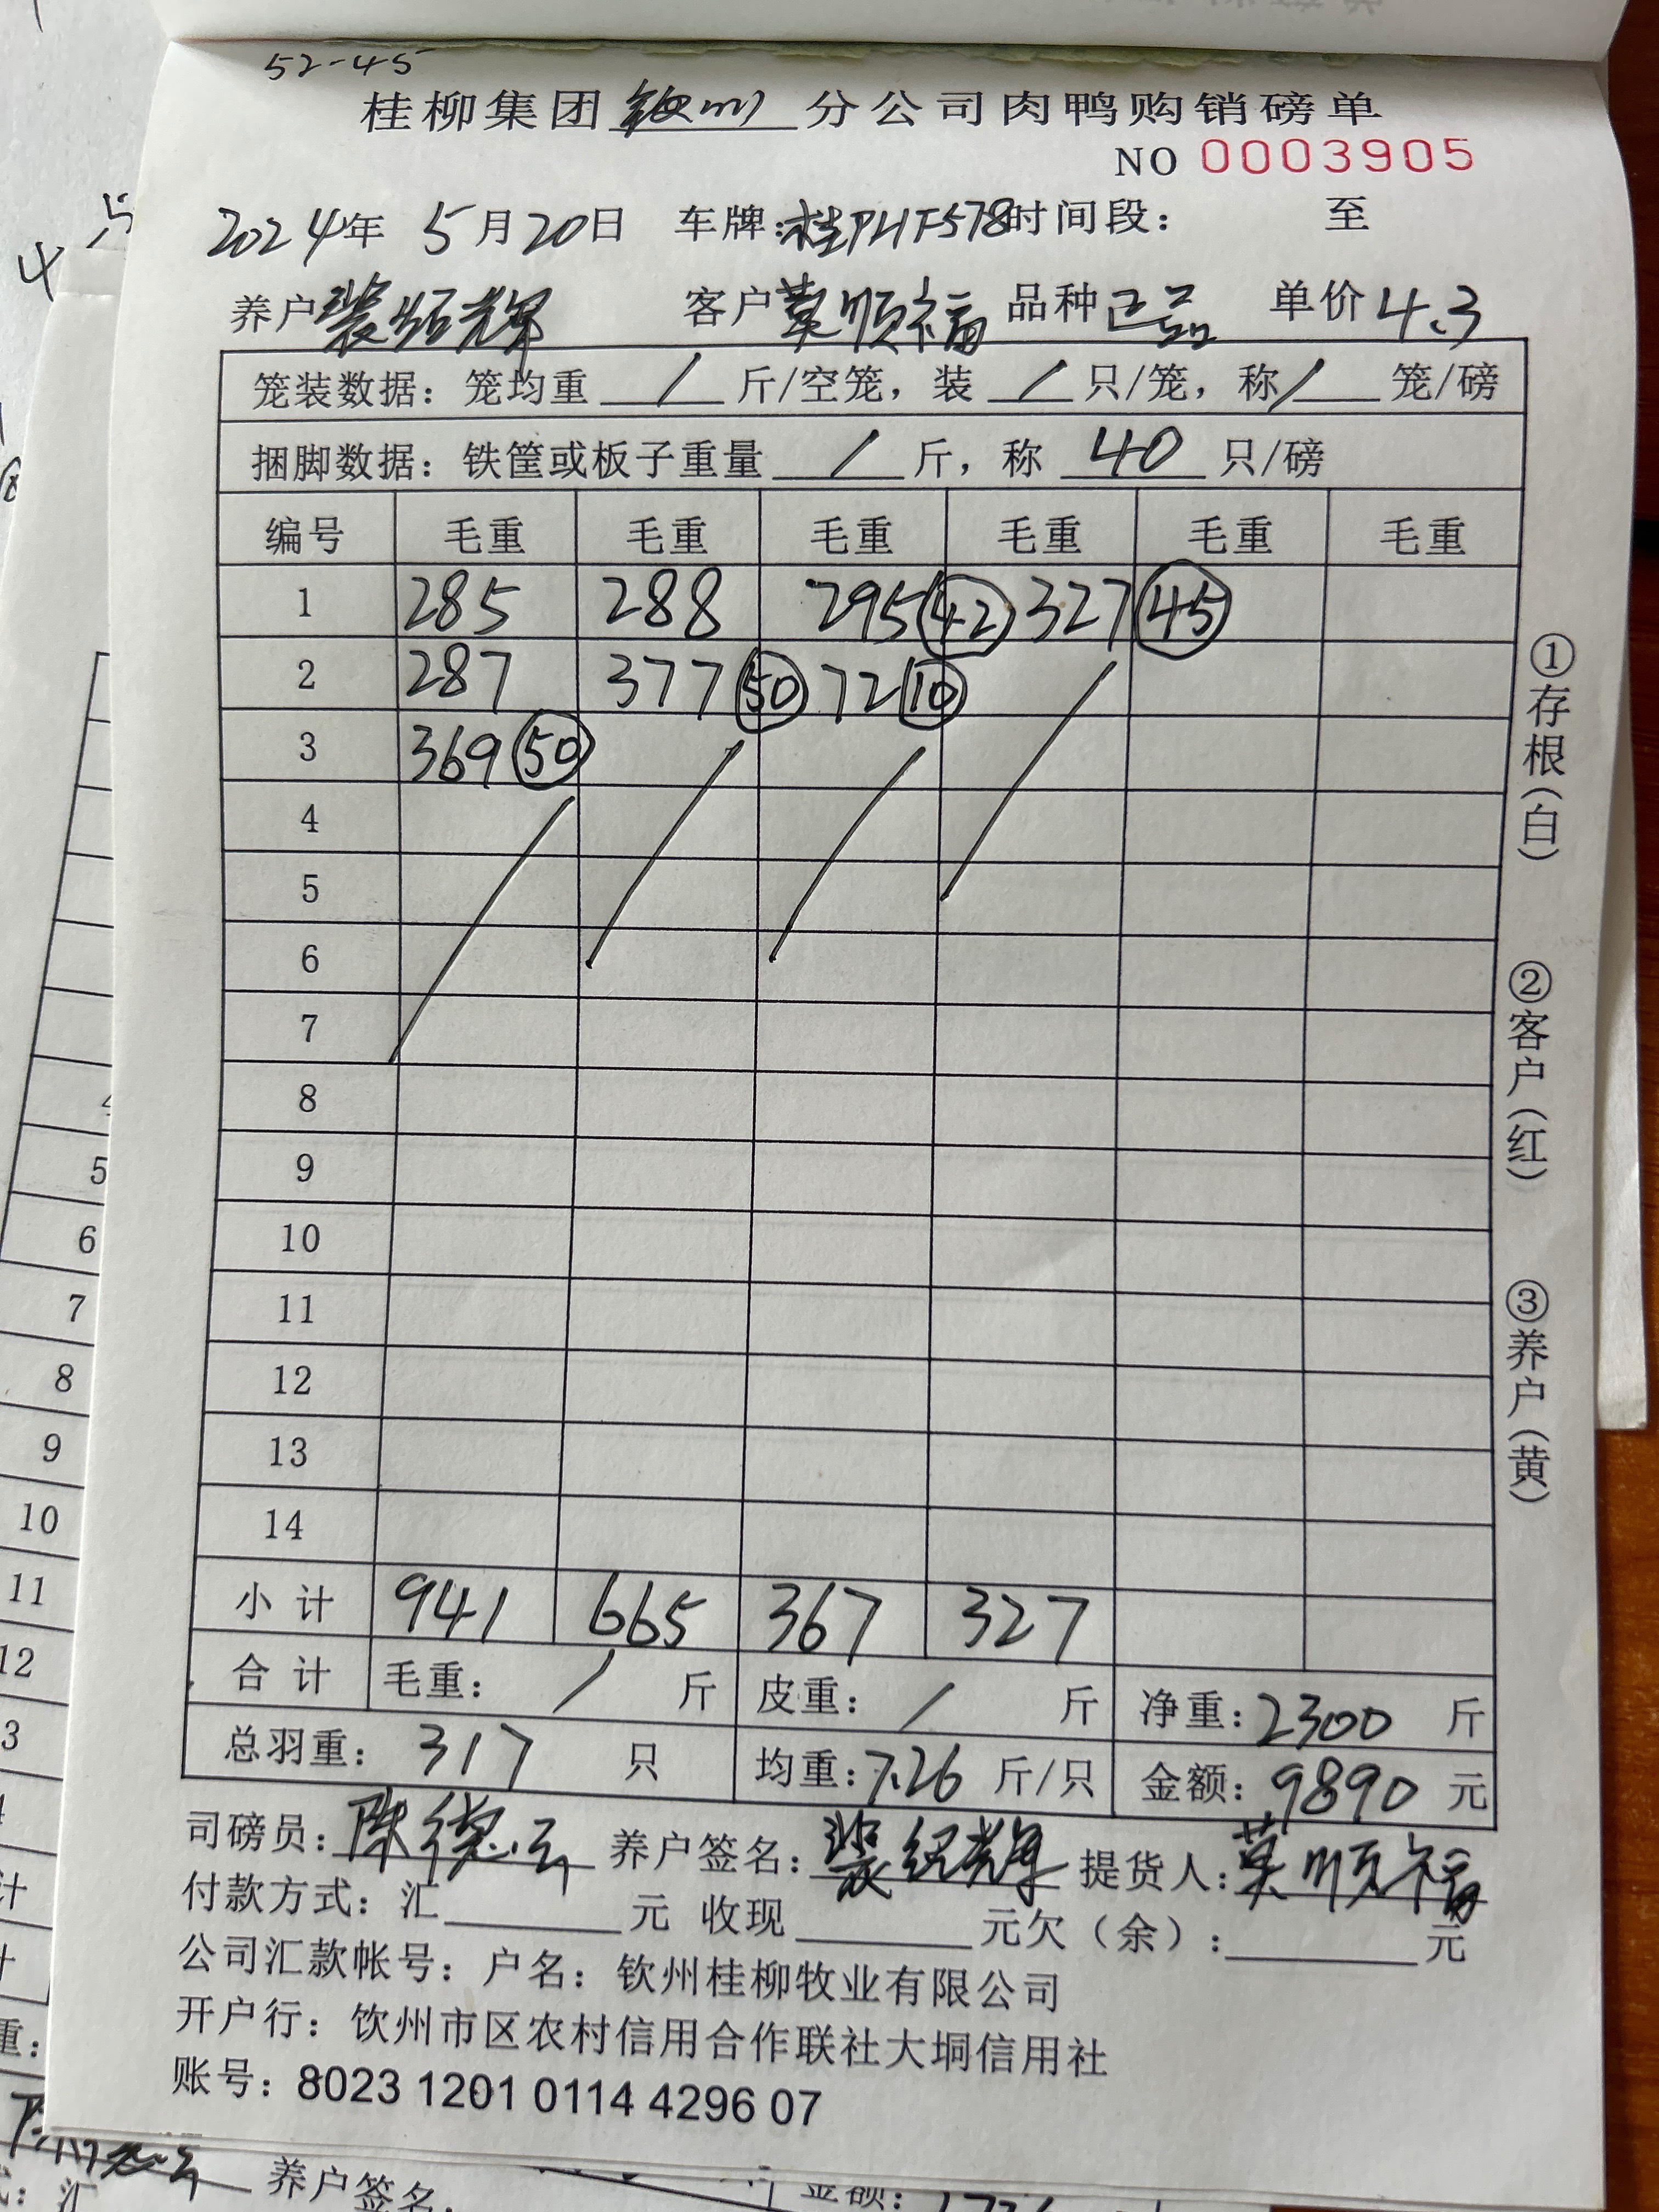 52-45
桂柳集团钦州分公司肉鸭购销磅单
NO 0003905
2024年 5月20日 车牌:桂PHF578时间段: 至
养户裴绍辉 客户莫顺福 品种正品 单价4.3
笼装数据: 笼均重 / 斤/空笼, 装 / 只/笼, 称/ 笼/磅
捆脚数据: 铁筐或板子重量 / 斤, 称 40 只/磅
编号 毛重 毛重 毛重 毛重 毛重 毛重
1 285 288 295 42 327 45
2 287 377 50 72 10
3 369 50
4
5
6
7
8
9
10
11
12
13
14
小计 941 665 367 327
合计 毛重: / 斤 皮重: / 斤 净重:2300 斤
总羽重: 317 只 均重:7.26 斤/只 金额:9890 元
司磅员:陈德云 养户签名:裴绍辉 提货人:莫顺福
付款方式: 汇 元 收现 元欠(余): 元
公司汇款帐号: 户名: 钦州桂柳牧业有限公司
开户行: 钦州市区农村信用合作联社大垌信用社
账号: 8023 1201 0114 4296 07
①存根(白)
②客户(红)
③养户(黄)
4
5
6
7
8
9
10
11
12
养户签名:
金额: